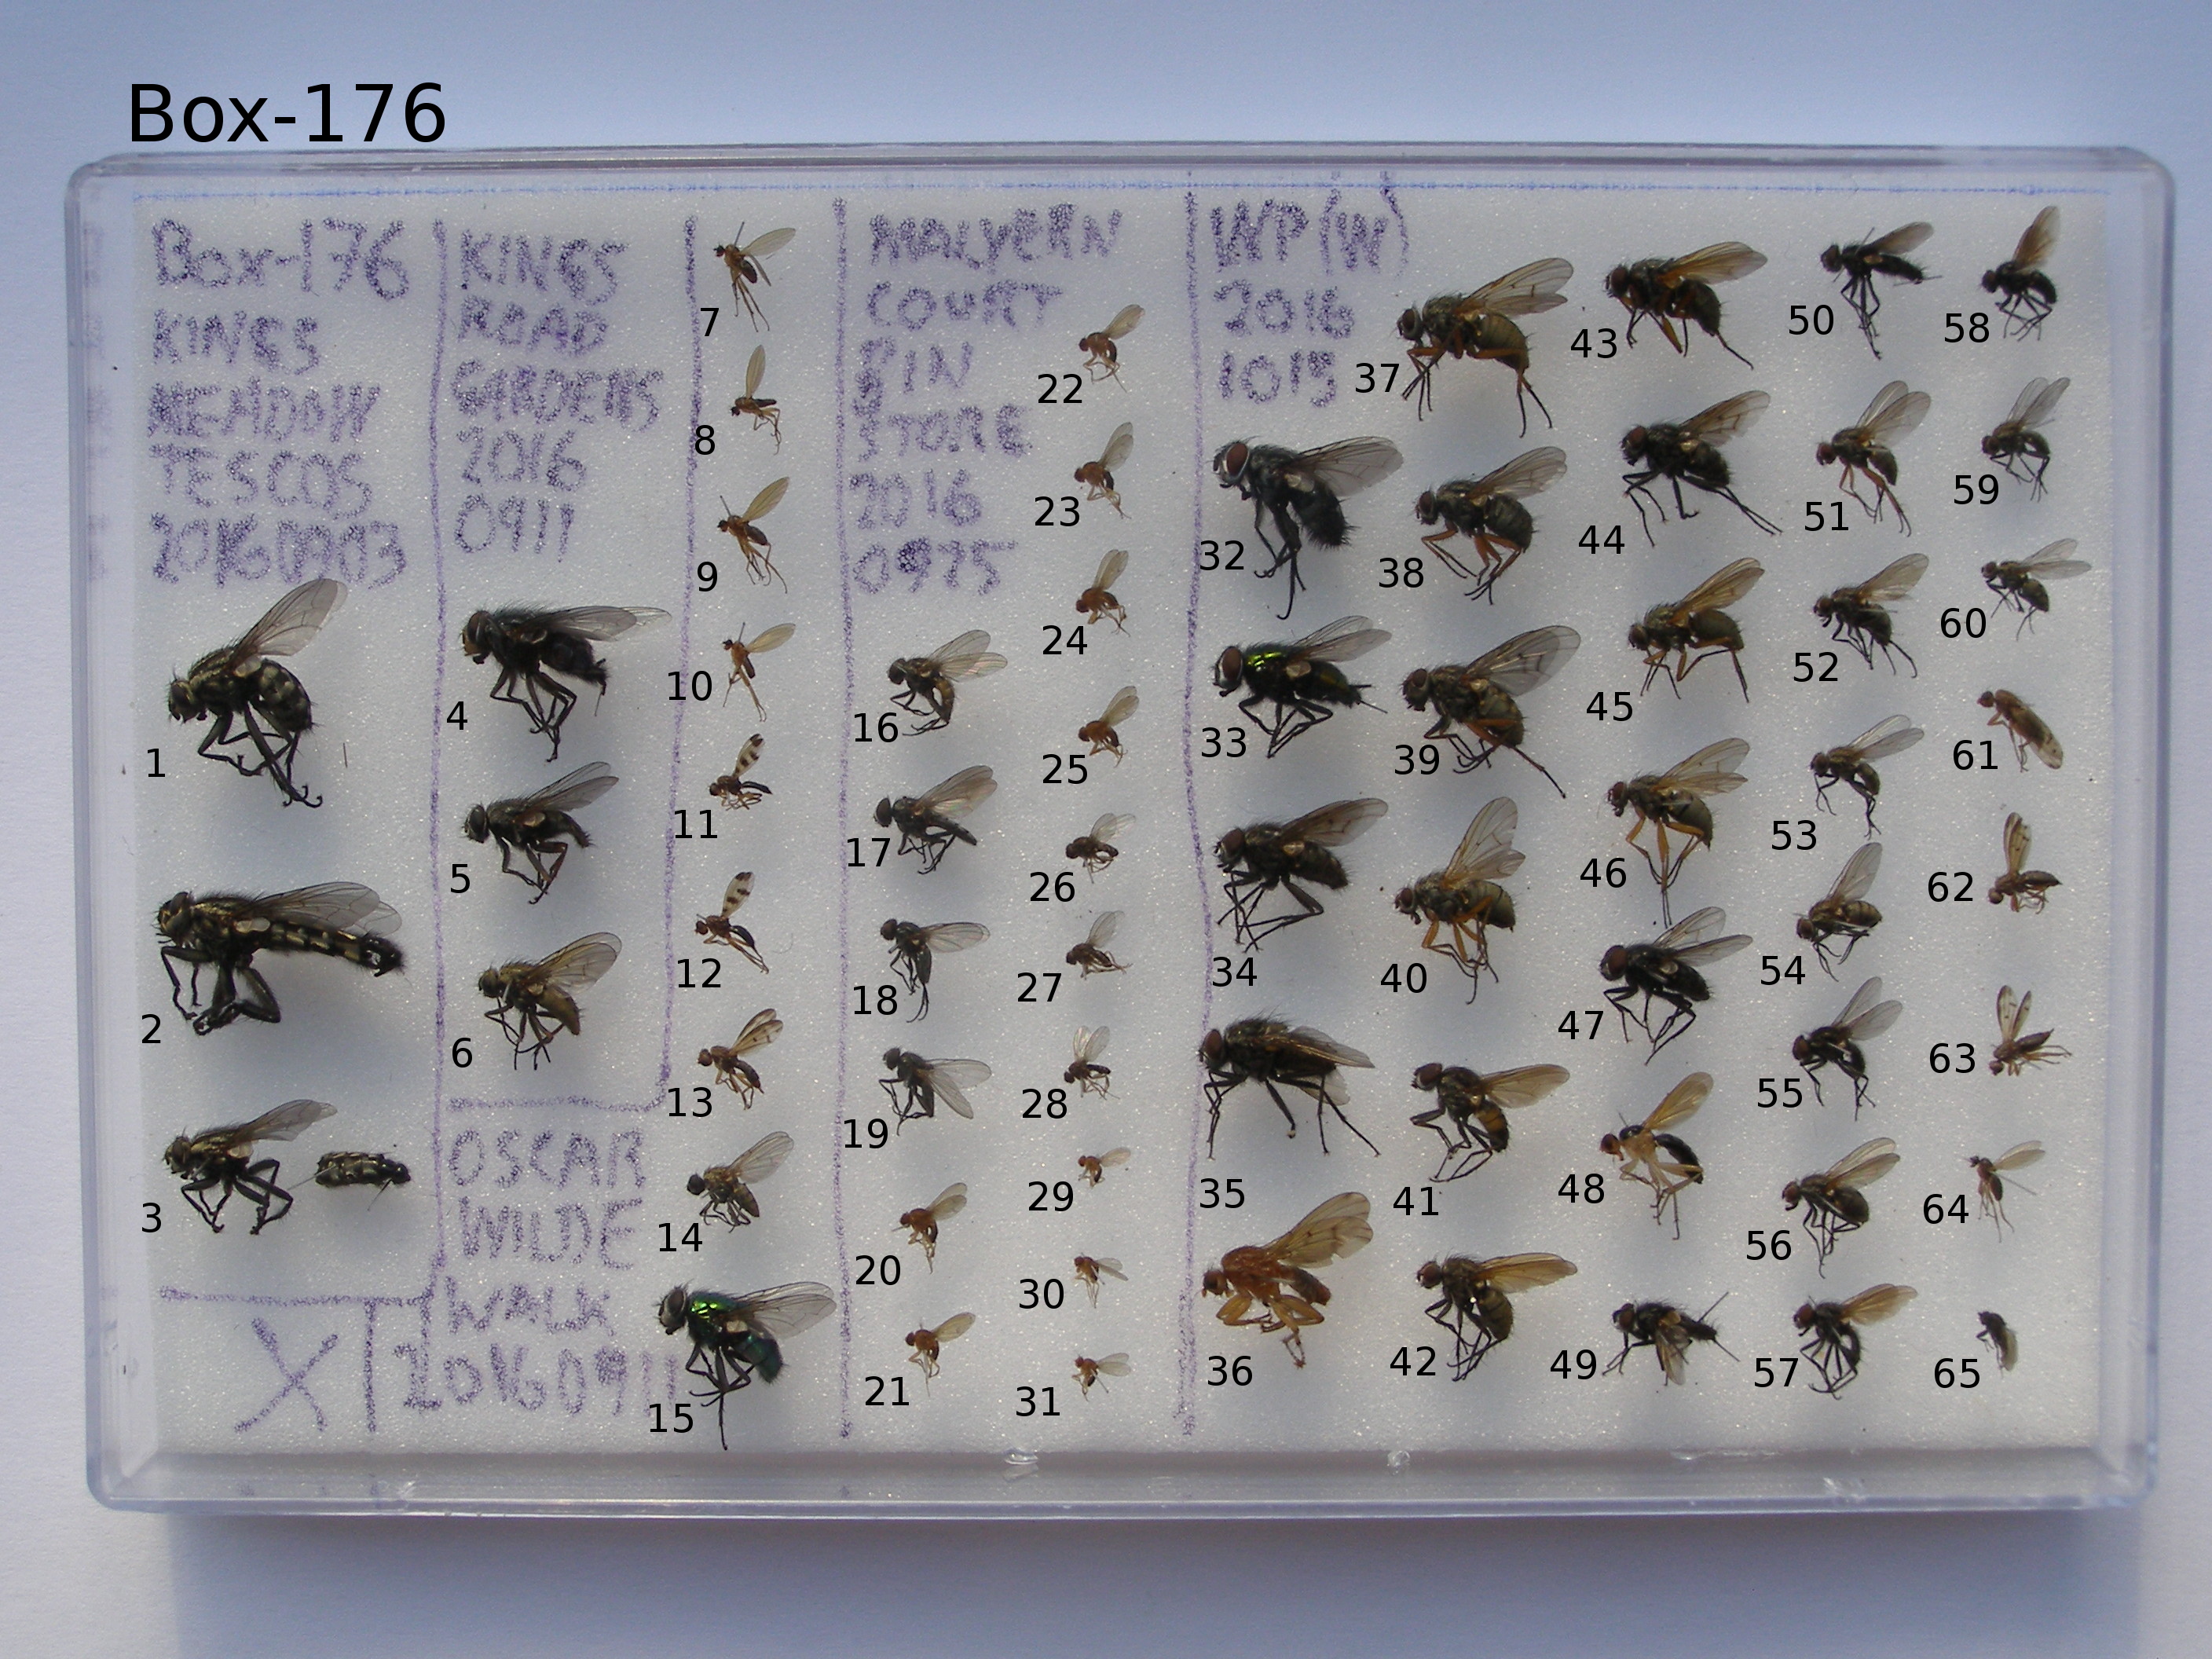 Box-176
Box-176
KINGS
MEADOW
TESCOS
20160903
1
2
3
X
KINGS
ROAD
GARDENS
2016
0911
4
5
6
OSCAR
WILDE
WALK
20160911
7
8
9
10
11
12
13
14
15
MALVERN
COURT
BIN
STORE
2016
0925
16
17
18
19
20
21
22
23
24
25
26
27
28
29
30
31
WP(W)
2016
1015
32
33
34
35
36
37
38
39
40
41
42
43
44
45
46
47
48
49
50
51
52
53
54
55
56
57
58
59
60
61
62
63
64
65